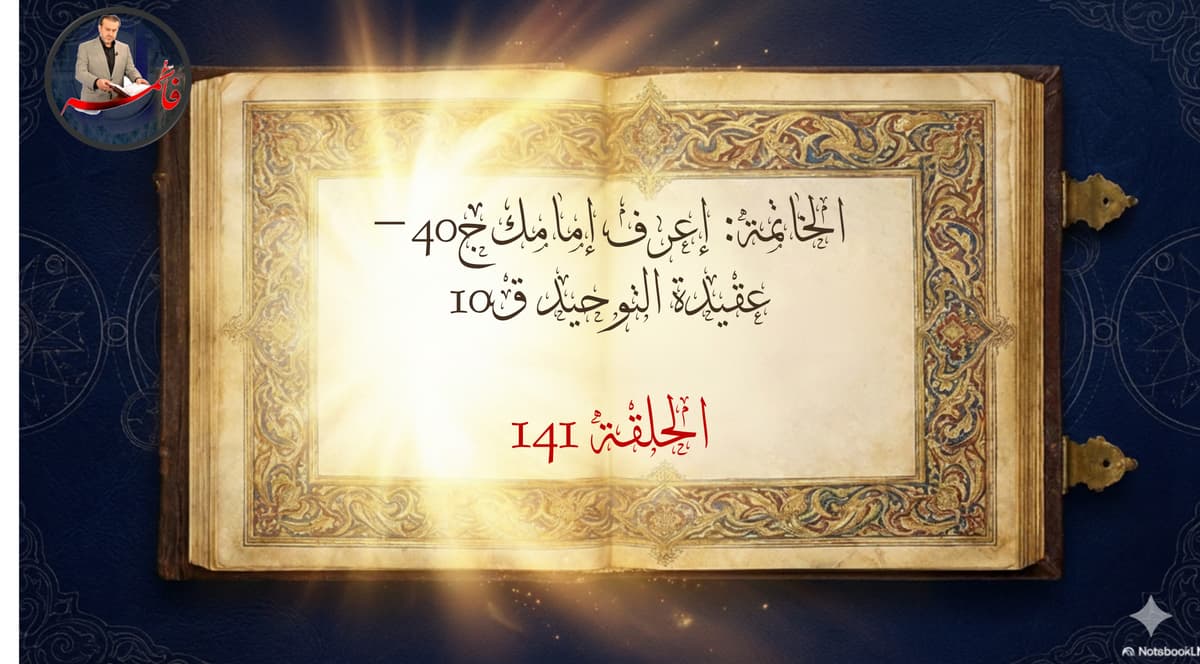 فاطمة
الخاتمة: إعرف إمامك ج40 –
عقيدة التوحيد ق10
الحلقة 141
NotsbookL